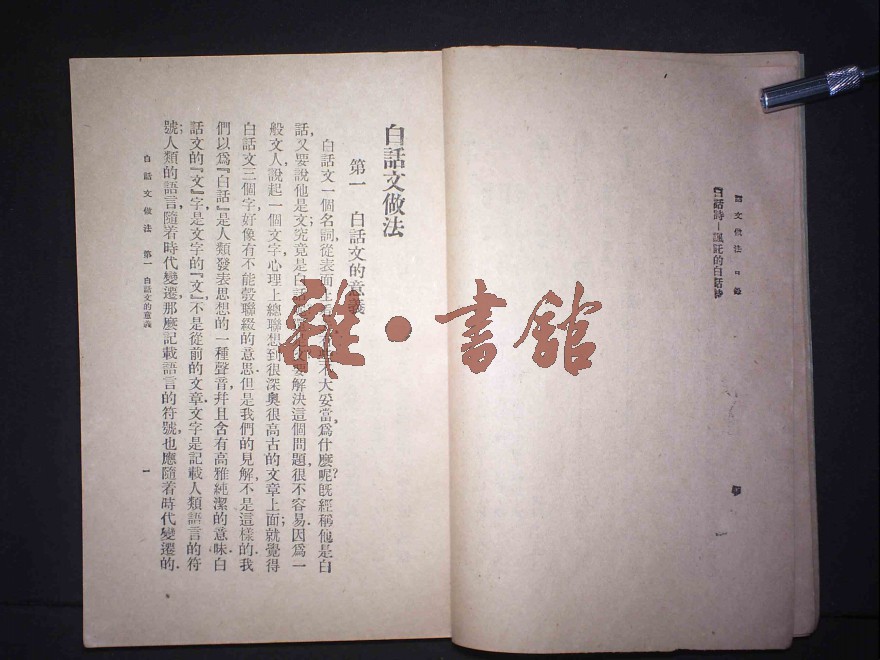 白話詩—諷託的白話詩
白話文做法
第一　白話文的意義
白話文一個名詞,從表面上
不大妥當,爲什麼呢?旣經稱他是白
話,又要說他是文;究竟是白話
要解決這個問題,很不容易.因爲一
般文人,說起一個文字,心理上總聯想到很深奧很高古的文章上面;就覺得
白話文三個字,好像有不能彀聯綴的意思.但是我們的見解,不是這樣的.我
們以爲『白話』是人類發表思想的一種聲音,幷且含有高雅純潔的意味.白
話文的『文』字,是文字的『文』,不是從前的文章.文字是記載人類語言的符
號;人類的語言,隨着時代變遷,那麼記載語言的符號,也應隨着時代變遷的.
白話文做法　第一　白話文的意義
一
雜·書館